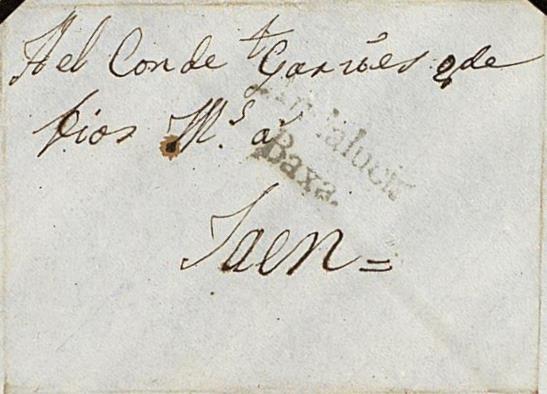 Al Conde Garcíes q.e
Dios M.s a.s
Andalucia
Baxa.
Jaen =